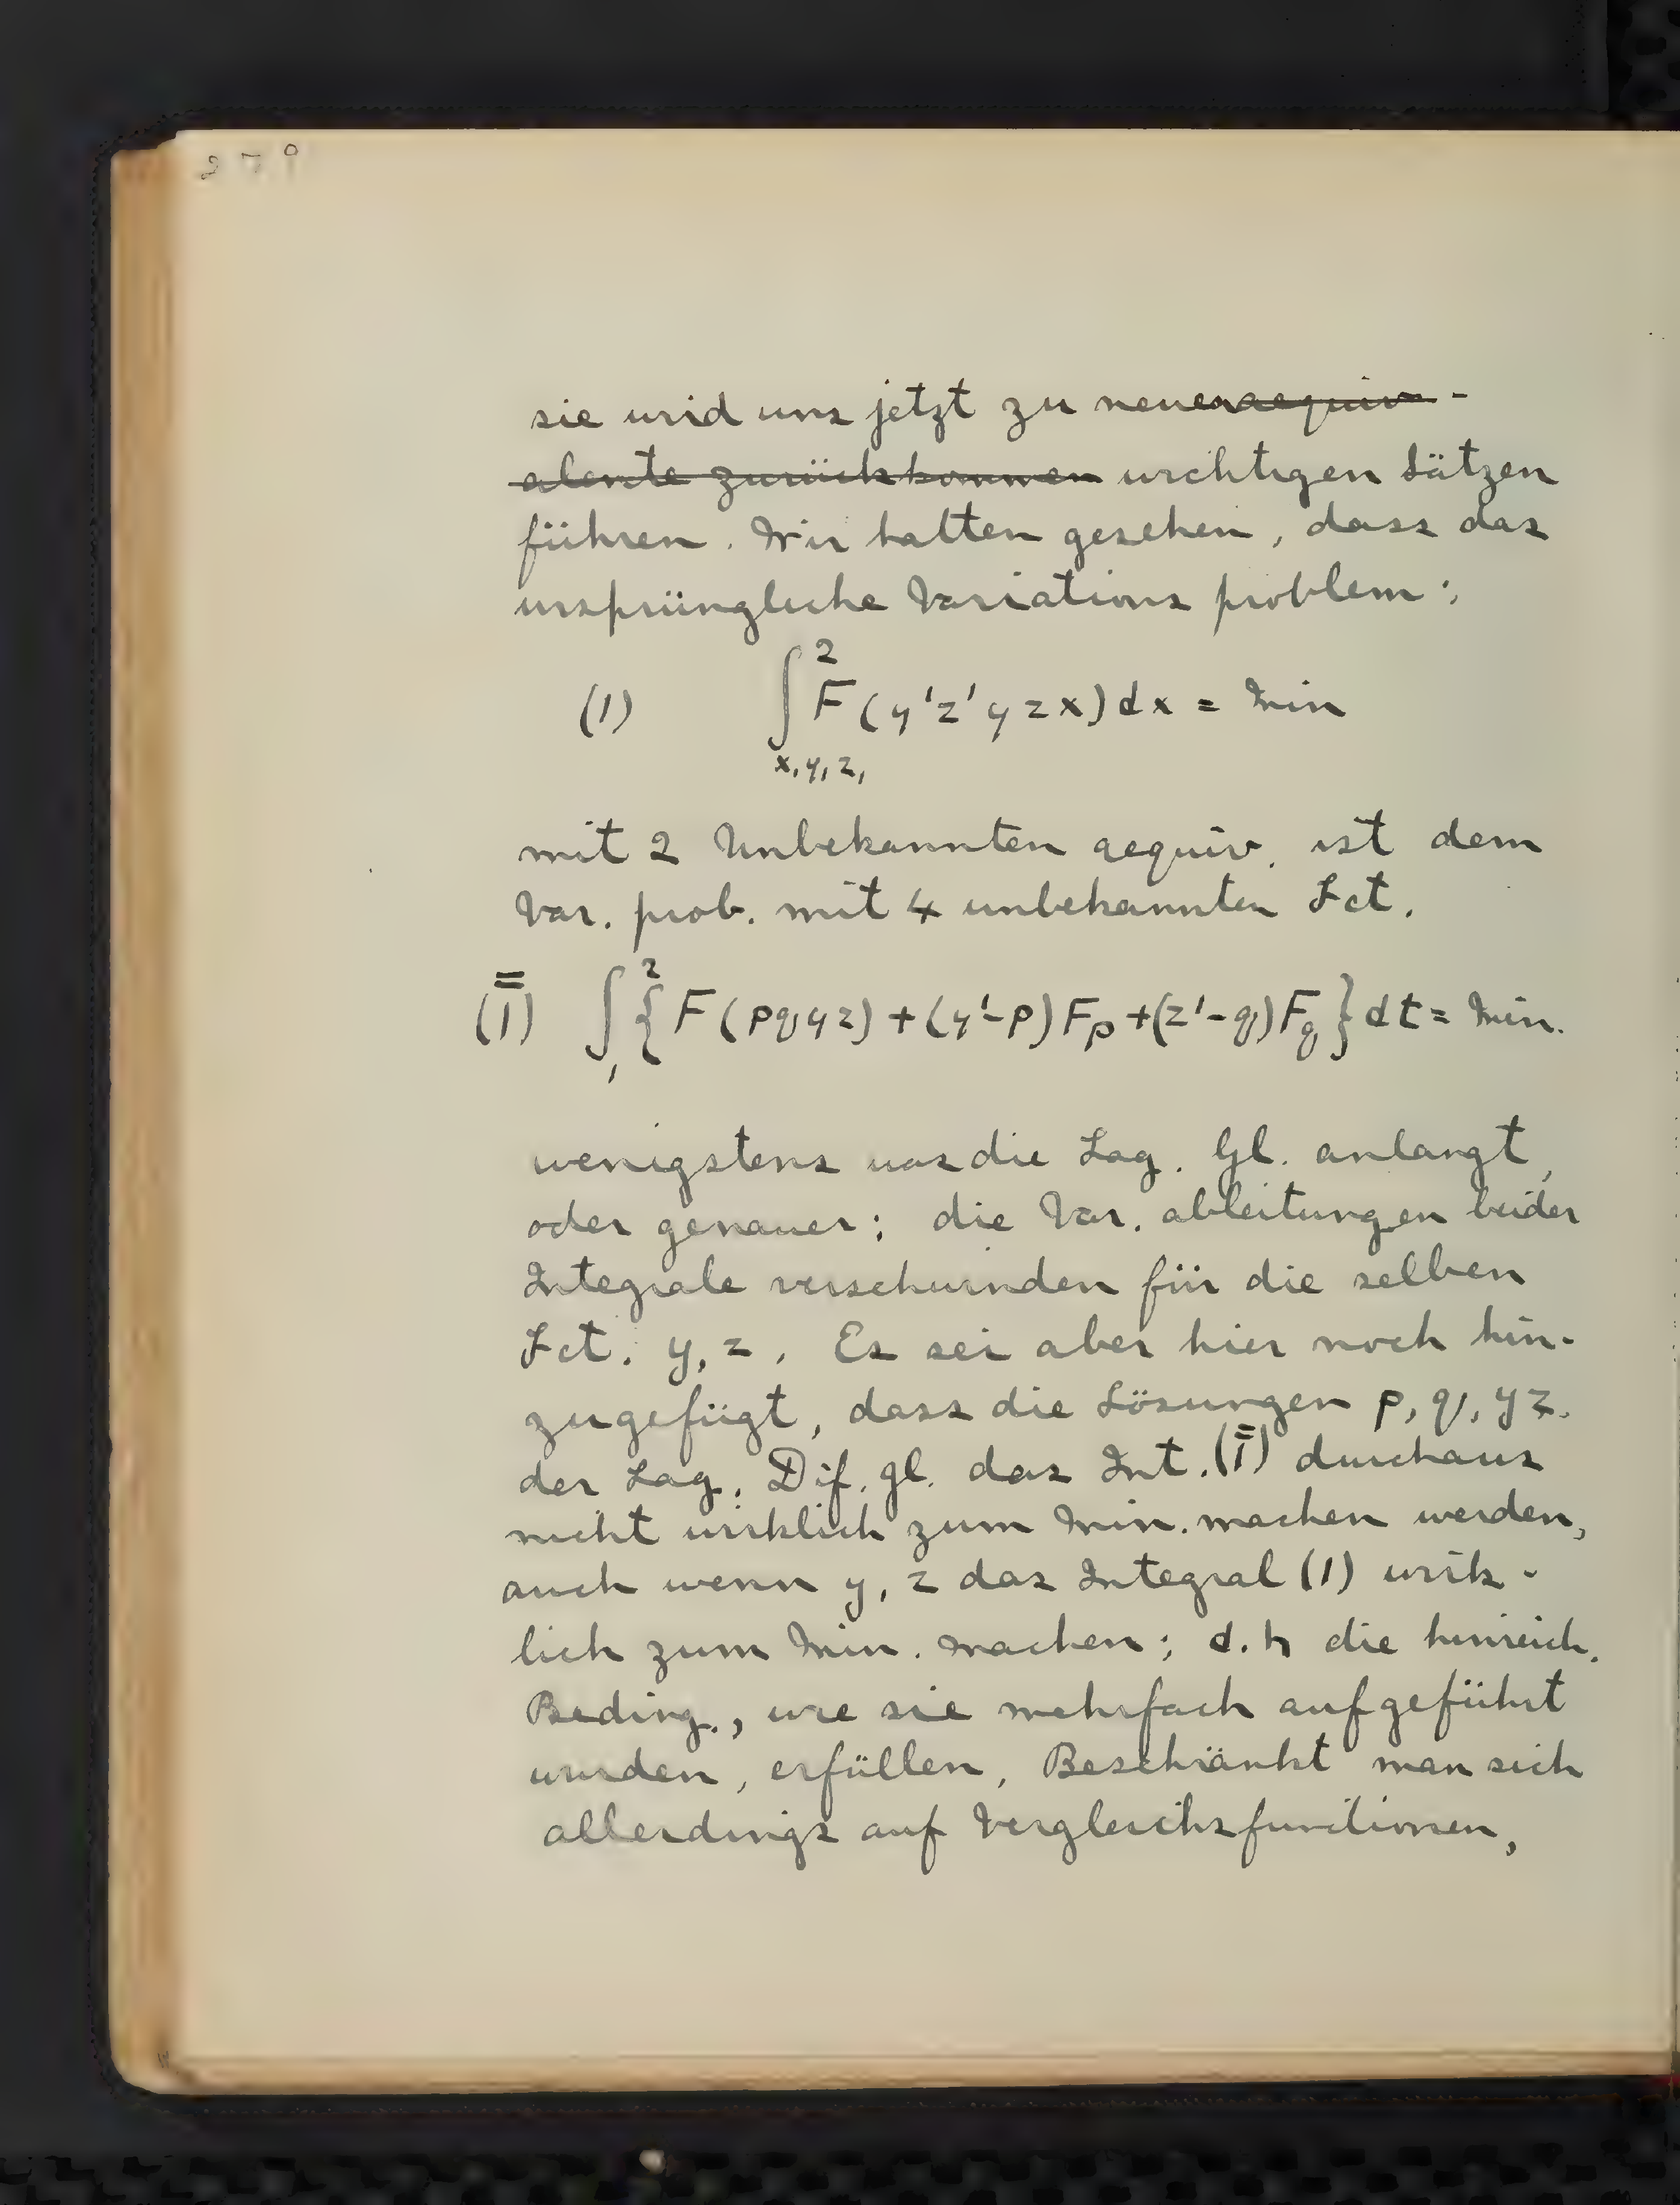 279
sie wird uns jetzt zu neuen aequiv-
alente zurückkommen wichtigen Sätzen
führen. Wir hatten gesehen, dass das
ursprüngliche Variations problem:
(1) ∫²_{x₁y₁z₁} F(y'z'yzx)dx = Min
mit 2 Unbekannten aequiv. ist dem
Var. prob. mit 4 unbekannten Fct.
(I̿) ∫₁² {F(pqyz)+(y'-p)F_p+(z'-q)F_q}dt = Min.
wenigstens was die Lag. Gl. anlangt,
oder genauer; die Var. ableitungen beider
Integrale verschwinden für die selben
Fct. y, z. Es sei aber hier noch hin-
zugefügt, dass die Lösungen p, q, y z.
der Lag. Dif. gl. das Int. (I̿) durchaus
nicht wirklich zum Min. machen werden,
auch wenn y, z das Integral (1) wirk-
lich zum Min. machen; d.h die hinreich.
Beding., wie sie mehrfach aufgeführt
wurden, erfüllen. Beschränkt man sich
allerdings auf Vergleichsfunctionen,